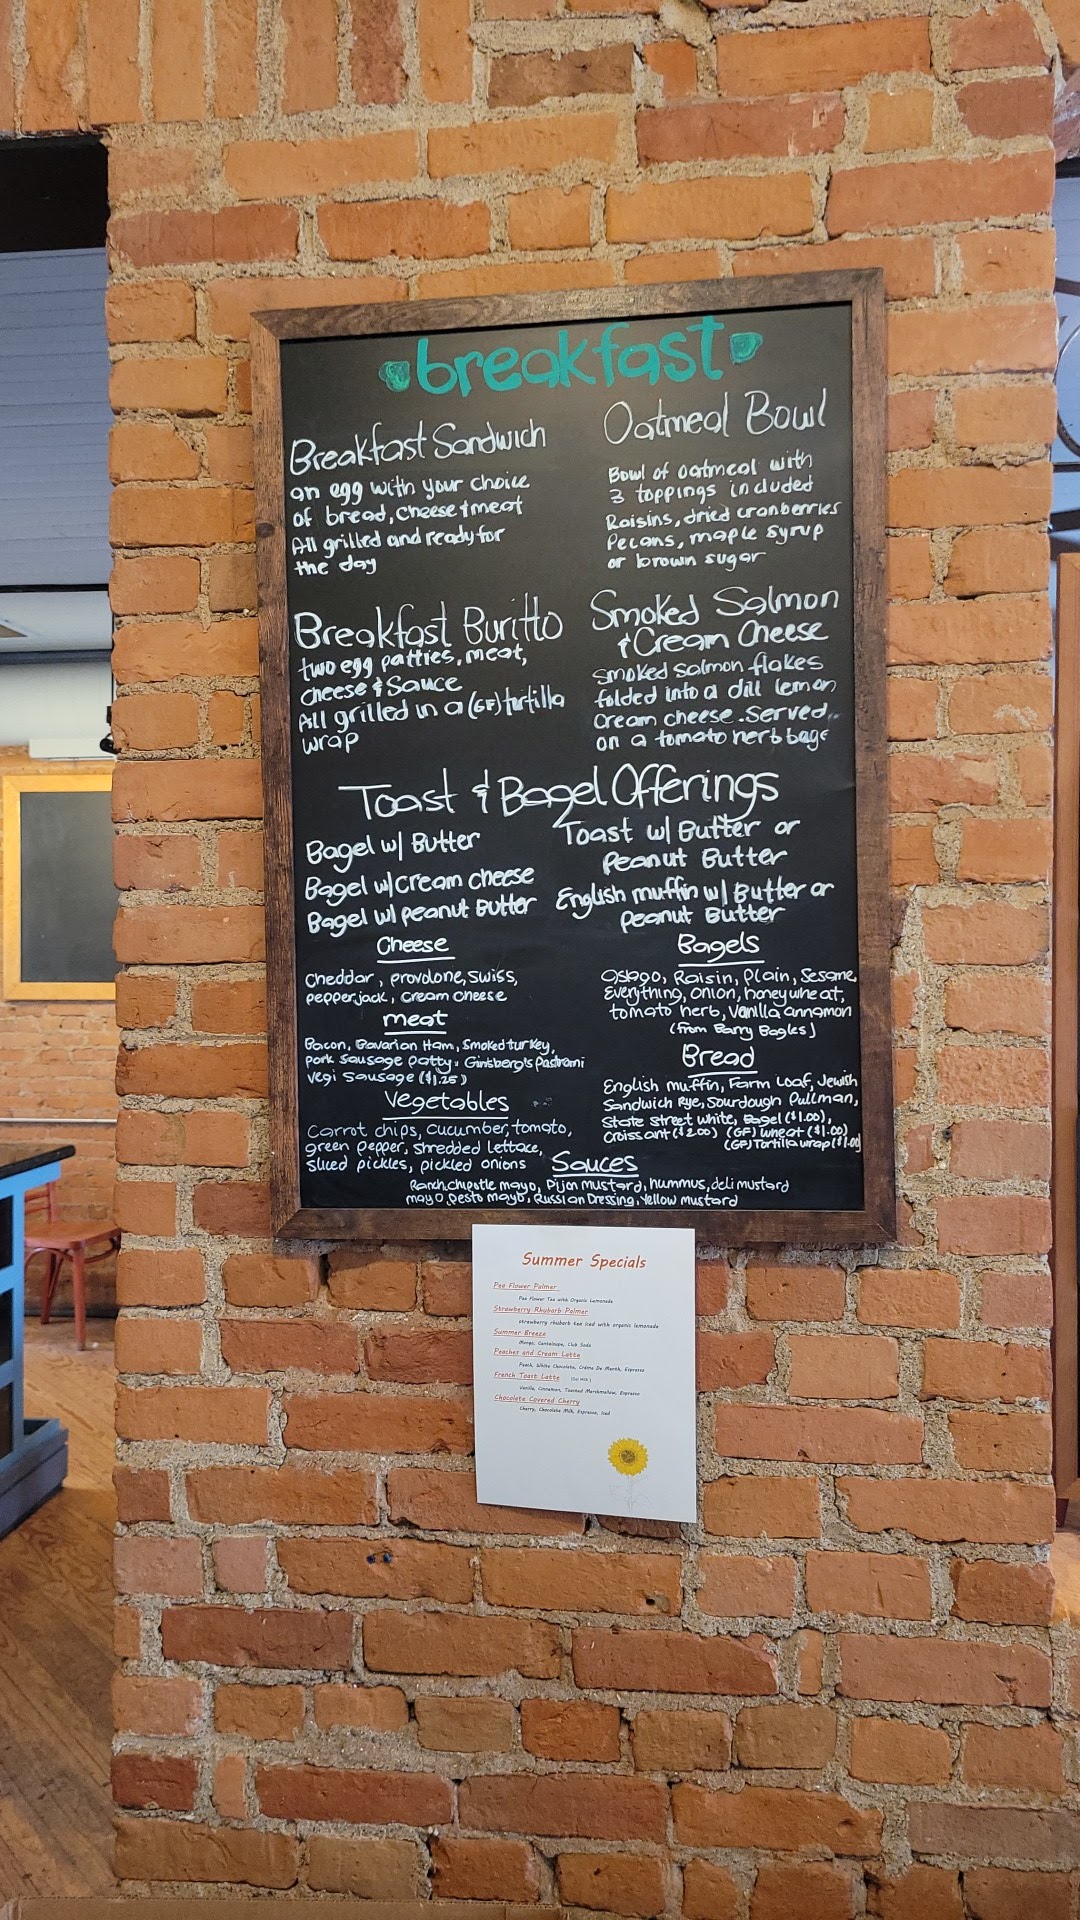 breakfast
Breakfast Sandwich
an egg with your choice
of bread, cheese & meat
All grilled and ready for
the day
Oatmeal Bowl
Bowl of oatmeal with
3 toppings included
Raisins, dried cranberries
Pecans, maple syrup
or brown sugar
Breakfast Buritto
two egg patties, meat,
cheese & Sauce
All grilled in a (GF) tortilla
wrap
Smoked Salmon
& Cream Cheese
smoked salmon flakes
folded into a dill lemon
cream cheese. Served
on a tomato herb bage
Toast & Bagel Offerings
Bagel w/ Butter
Bagel w/ cream cheese
Bagel w/ peanut Butter
Toast w/ Butter or
Peanut Butter
English muffin w/ Butter or
peanut Butter
Cheese
cheddar, provolone, swiss,
pepperjack, cream cheese
meat
Bacon, Bavarian Ham, Smoked turkey,
pork sausage patty, Ginsberg's Pastrami
vegi sausage ($1.25)
Vegetables
Carrot chips, cucumber, tomato,
green pepper, shredded lettace,
sliced pickles, pickled onions
Bagels
Osiago, Raisin, Plain, Sesame,
Everything, onion, honeywheat,
tomato herb, Vanilla cinnamon
(from Barry Bagles)
Bread
English muffin, Farm Loaf, Jewish
Sandwich Rye, Sourdough Pullman,
State Street white, Bagel ($1.00),
Croissant ($2.00) (GF) wheat ($1.00)
(GF) Tortilla wrap ($1.00)
Sauces
Ranch, chipotle mayo, Dijon mustard, hummus, deli mustard
mayo, pesto mayo, Russian Dressing, Yellow mustard
Summer Specials
Pea Flower Palmer
Pea Flower Tea with Organic Lemonade
Strawberry Rhubarb Palmer
strawberry rhubarb tea iced with organic lemonade
Summer Breeze
Mango, Cantaloupe, Club Soda
Peaches and Cream Latte
Peach, White Chocolate, Crème De Menth, Espresso
French Toast Latte (Oat Milk)
Vanilla, Cinnamon, Toasted Marshmallow, Espresso
Chocolate Covered Cherry
Cherry, Chocolate Milk, Espresso, Iced